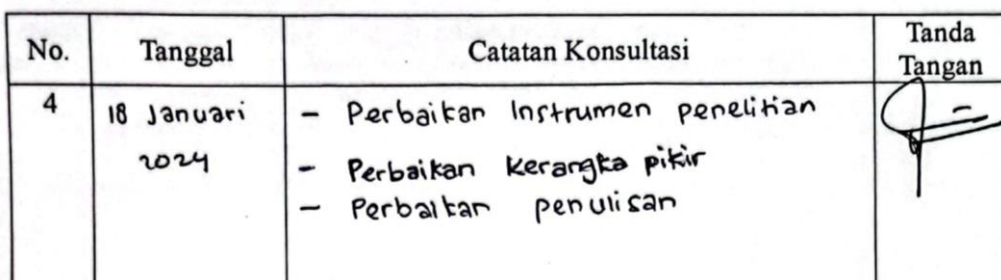 No. Tanggal Catatan Konsultasi Tanda Tangan
4 18 Januari 2024 - Perbaikan Instrumen penelitian
- Perbaikan kerangka pikir
- Perbaikan penulisan